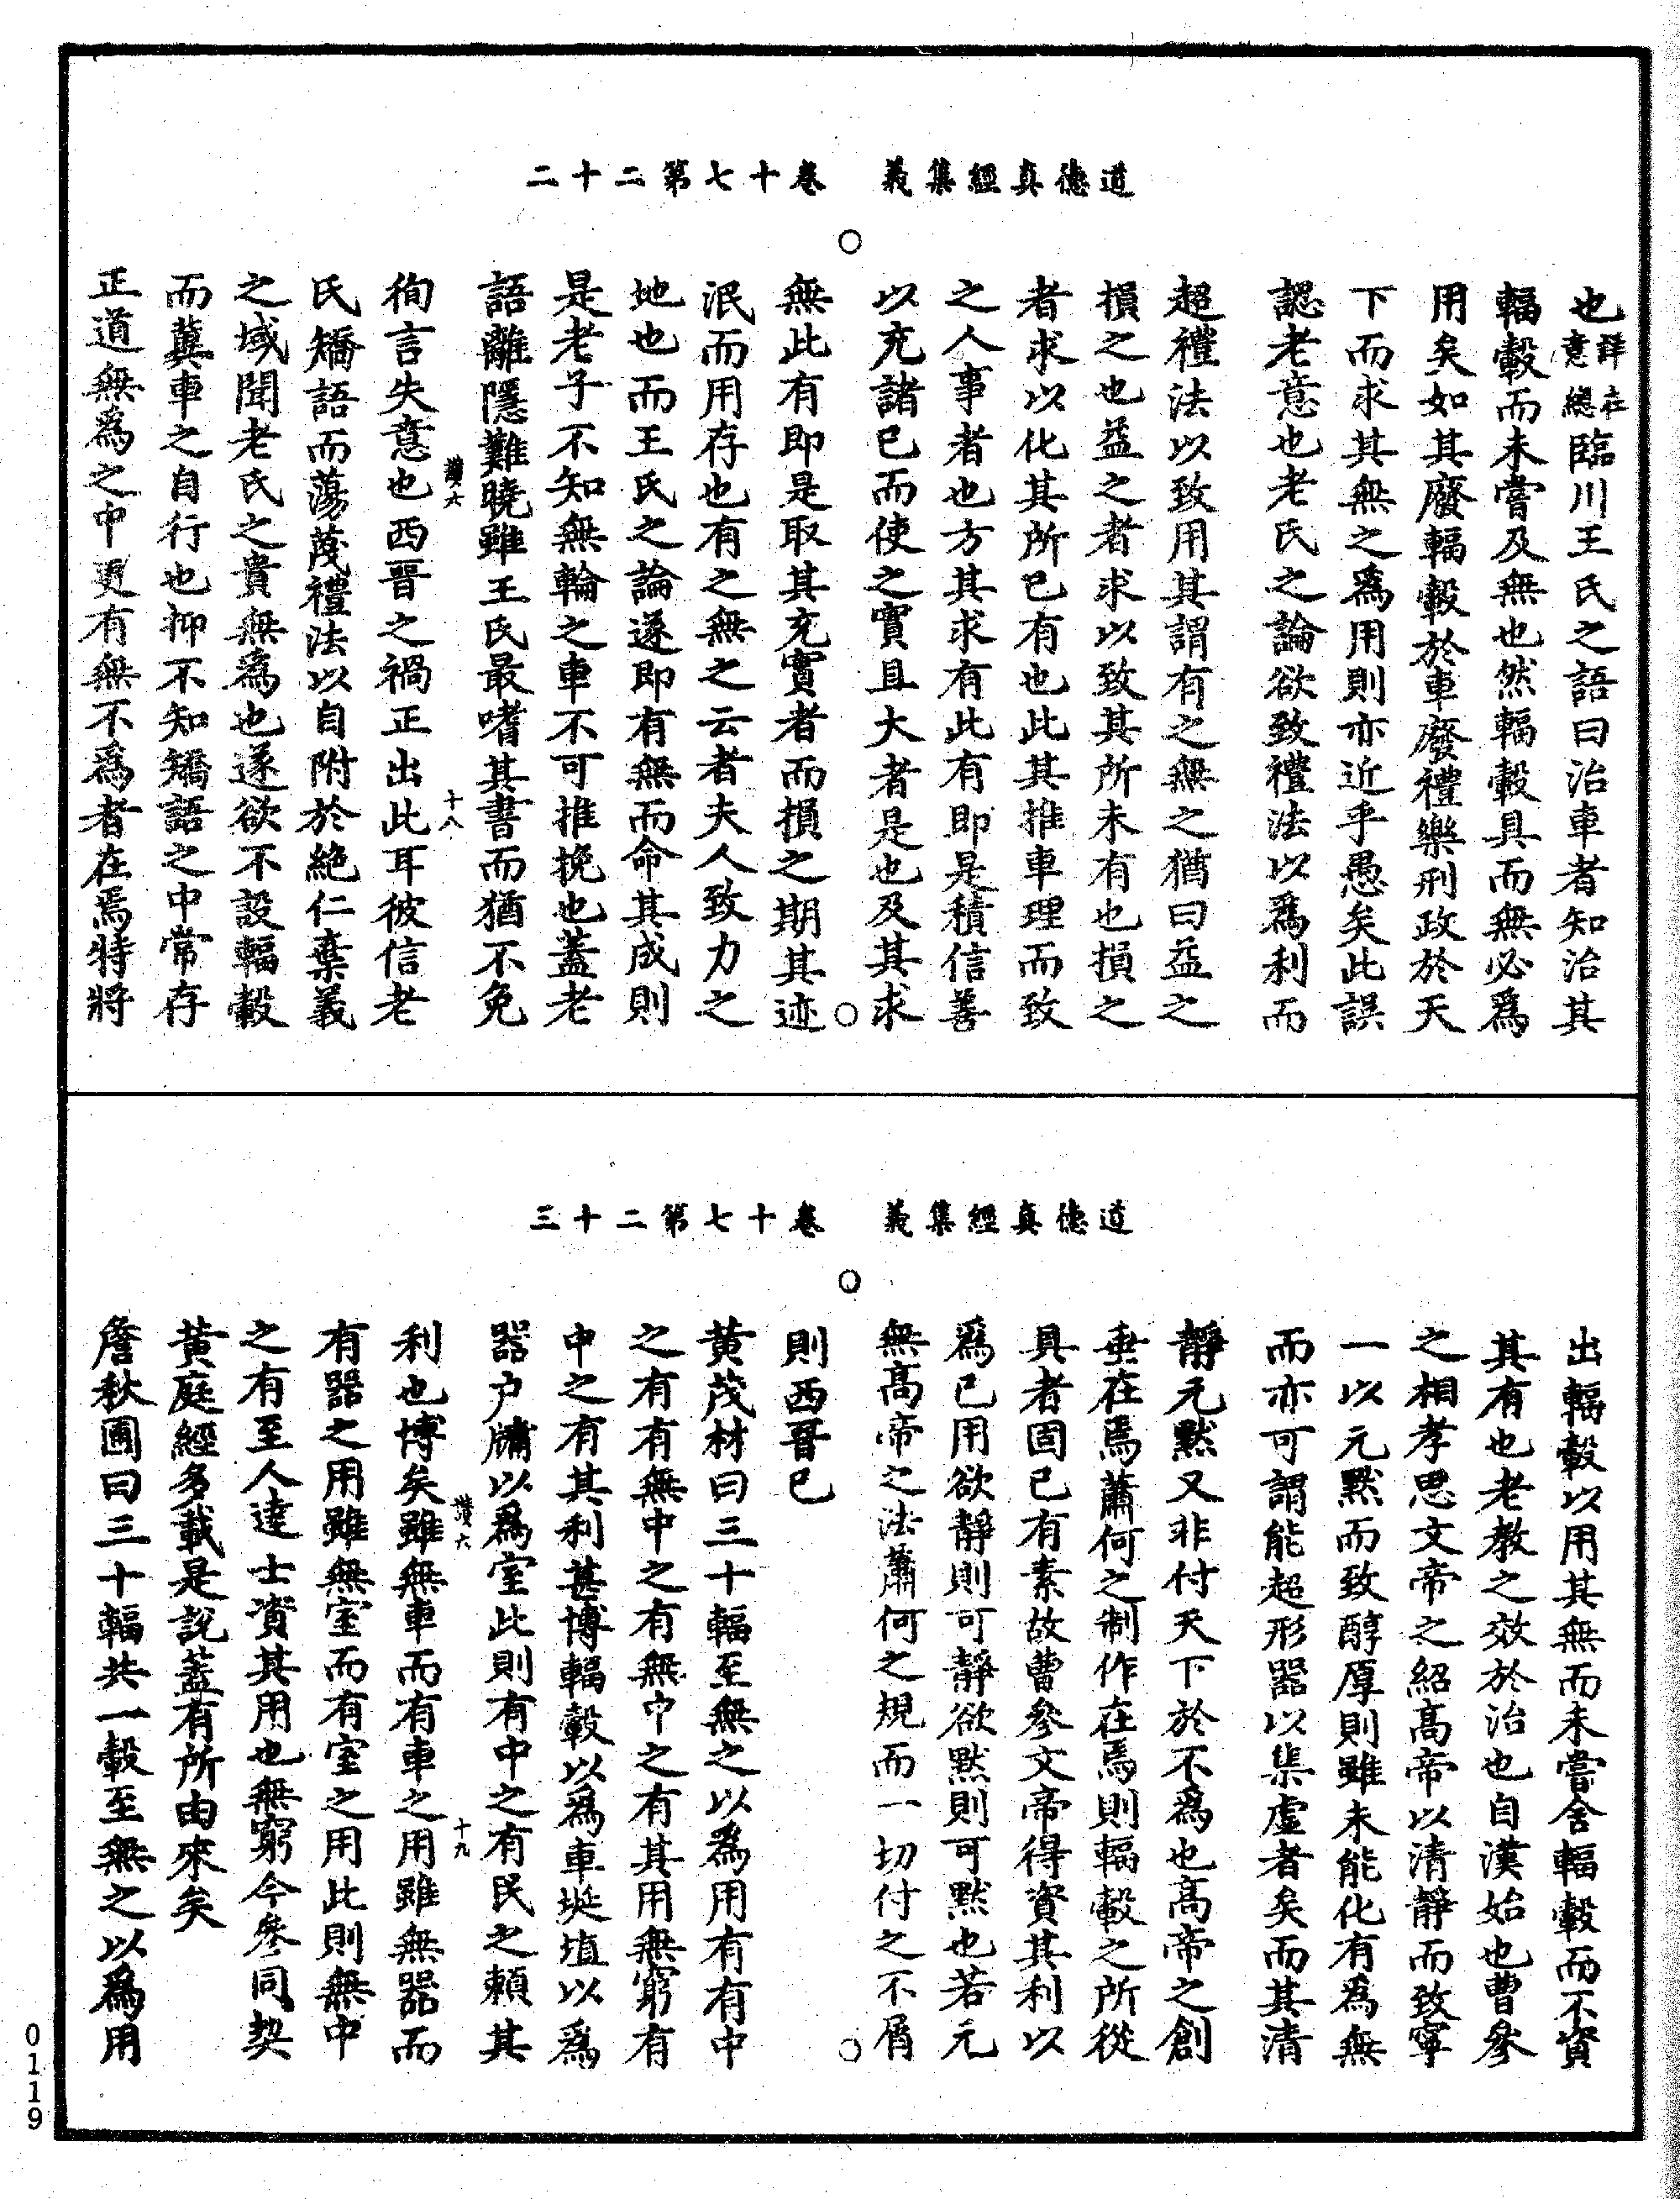 道德真經集義　卷十七第二十二
也詳在意總臨川王氏之語曰治車者知治其
輻轂而未嘗及無也然輻轂具而無必爲
用矣如其廢輻轂於車廢禮樂刑政於天
下而求其無之爲用則亦近乎愚矣此誤
認老意也老氏之論欲致禮法以爲利而
超禮法以致用其謂有之無之猶曰益之
損之也益之者求以致其所未有也損之
者求以化其所已有也此其推車理而致
之人事者也方其求有此有即是積信善
以充諸己而使之實且大者是也及其求
無此有即是取其充實者而損之期其迹
泯而用存也有之無之云者夫人致力之
地也而王氏之論遂即有無而命其成則
是老子不知無輪之車不可推挽也蓋老
語離隱難曉雖王氏最嗜其書而猶不免
讚六
十八
徇言失意也西晉之禍正出此耳彼信老
氏矯語而蕩蔑禮法以自附於絕仁棄義
之域聞老氏之貴無爲也遂欲不設輻轂
而冀車之自行也抑不知矯語之中常存
正道無爲之中更有無不爲者在焉特將
道德真經集義　卷十七第二十三
出輻轂以用其無而未嘗舍輻轂而不資
其有也老教之效於治也自漢始也曹參
之相孝思文帝之紹高帝以清靜而致寧
一以元默而致醇厚則雖未能化有爲無
而亦可謂能超形器以集虛者矣而其清
靜元默又非付天下於不爲也高帝之創
垂在焉蕭何之制作在焉則輻轂之所從
具者固已有素故曹參文帝得資其利以
爲己用欲靜則可靜欲默則可默也若元
無高帝之法蕭何之規而一切付之不屑
則西晉已
黃茂材曰三十輻至無之以爲用有有中
之有有無中之有無中之有其用無窮有
中之有其利甚博輻轂以爲車埏埴以爲
器户牖以爲室此則有中之有民之賴其
讚六
十九
利也博矣雖無車而有車之用雖無器而
有器之用雖無室而有室之用此則無中
之有至人達士資其用也無窮今參同契
黃庭經多載是說蓋有所由來矣
詹秋圃曰三十輻共一轂至無之以爲用
0119